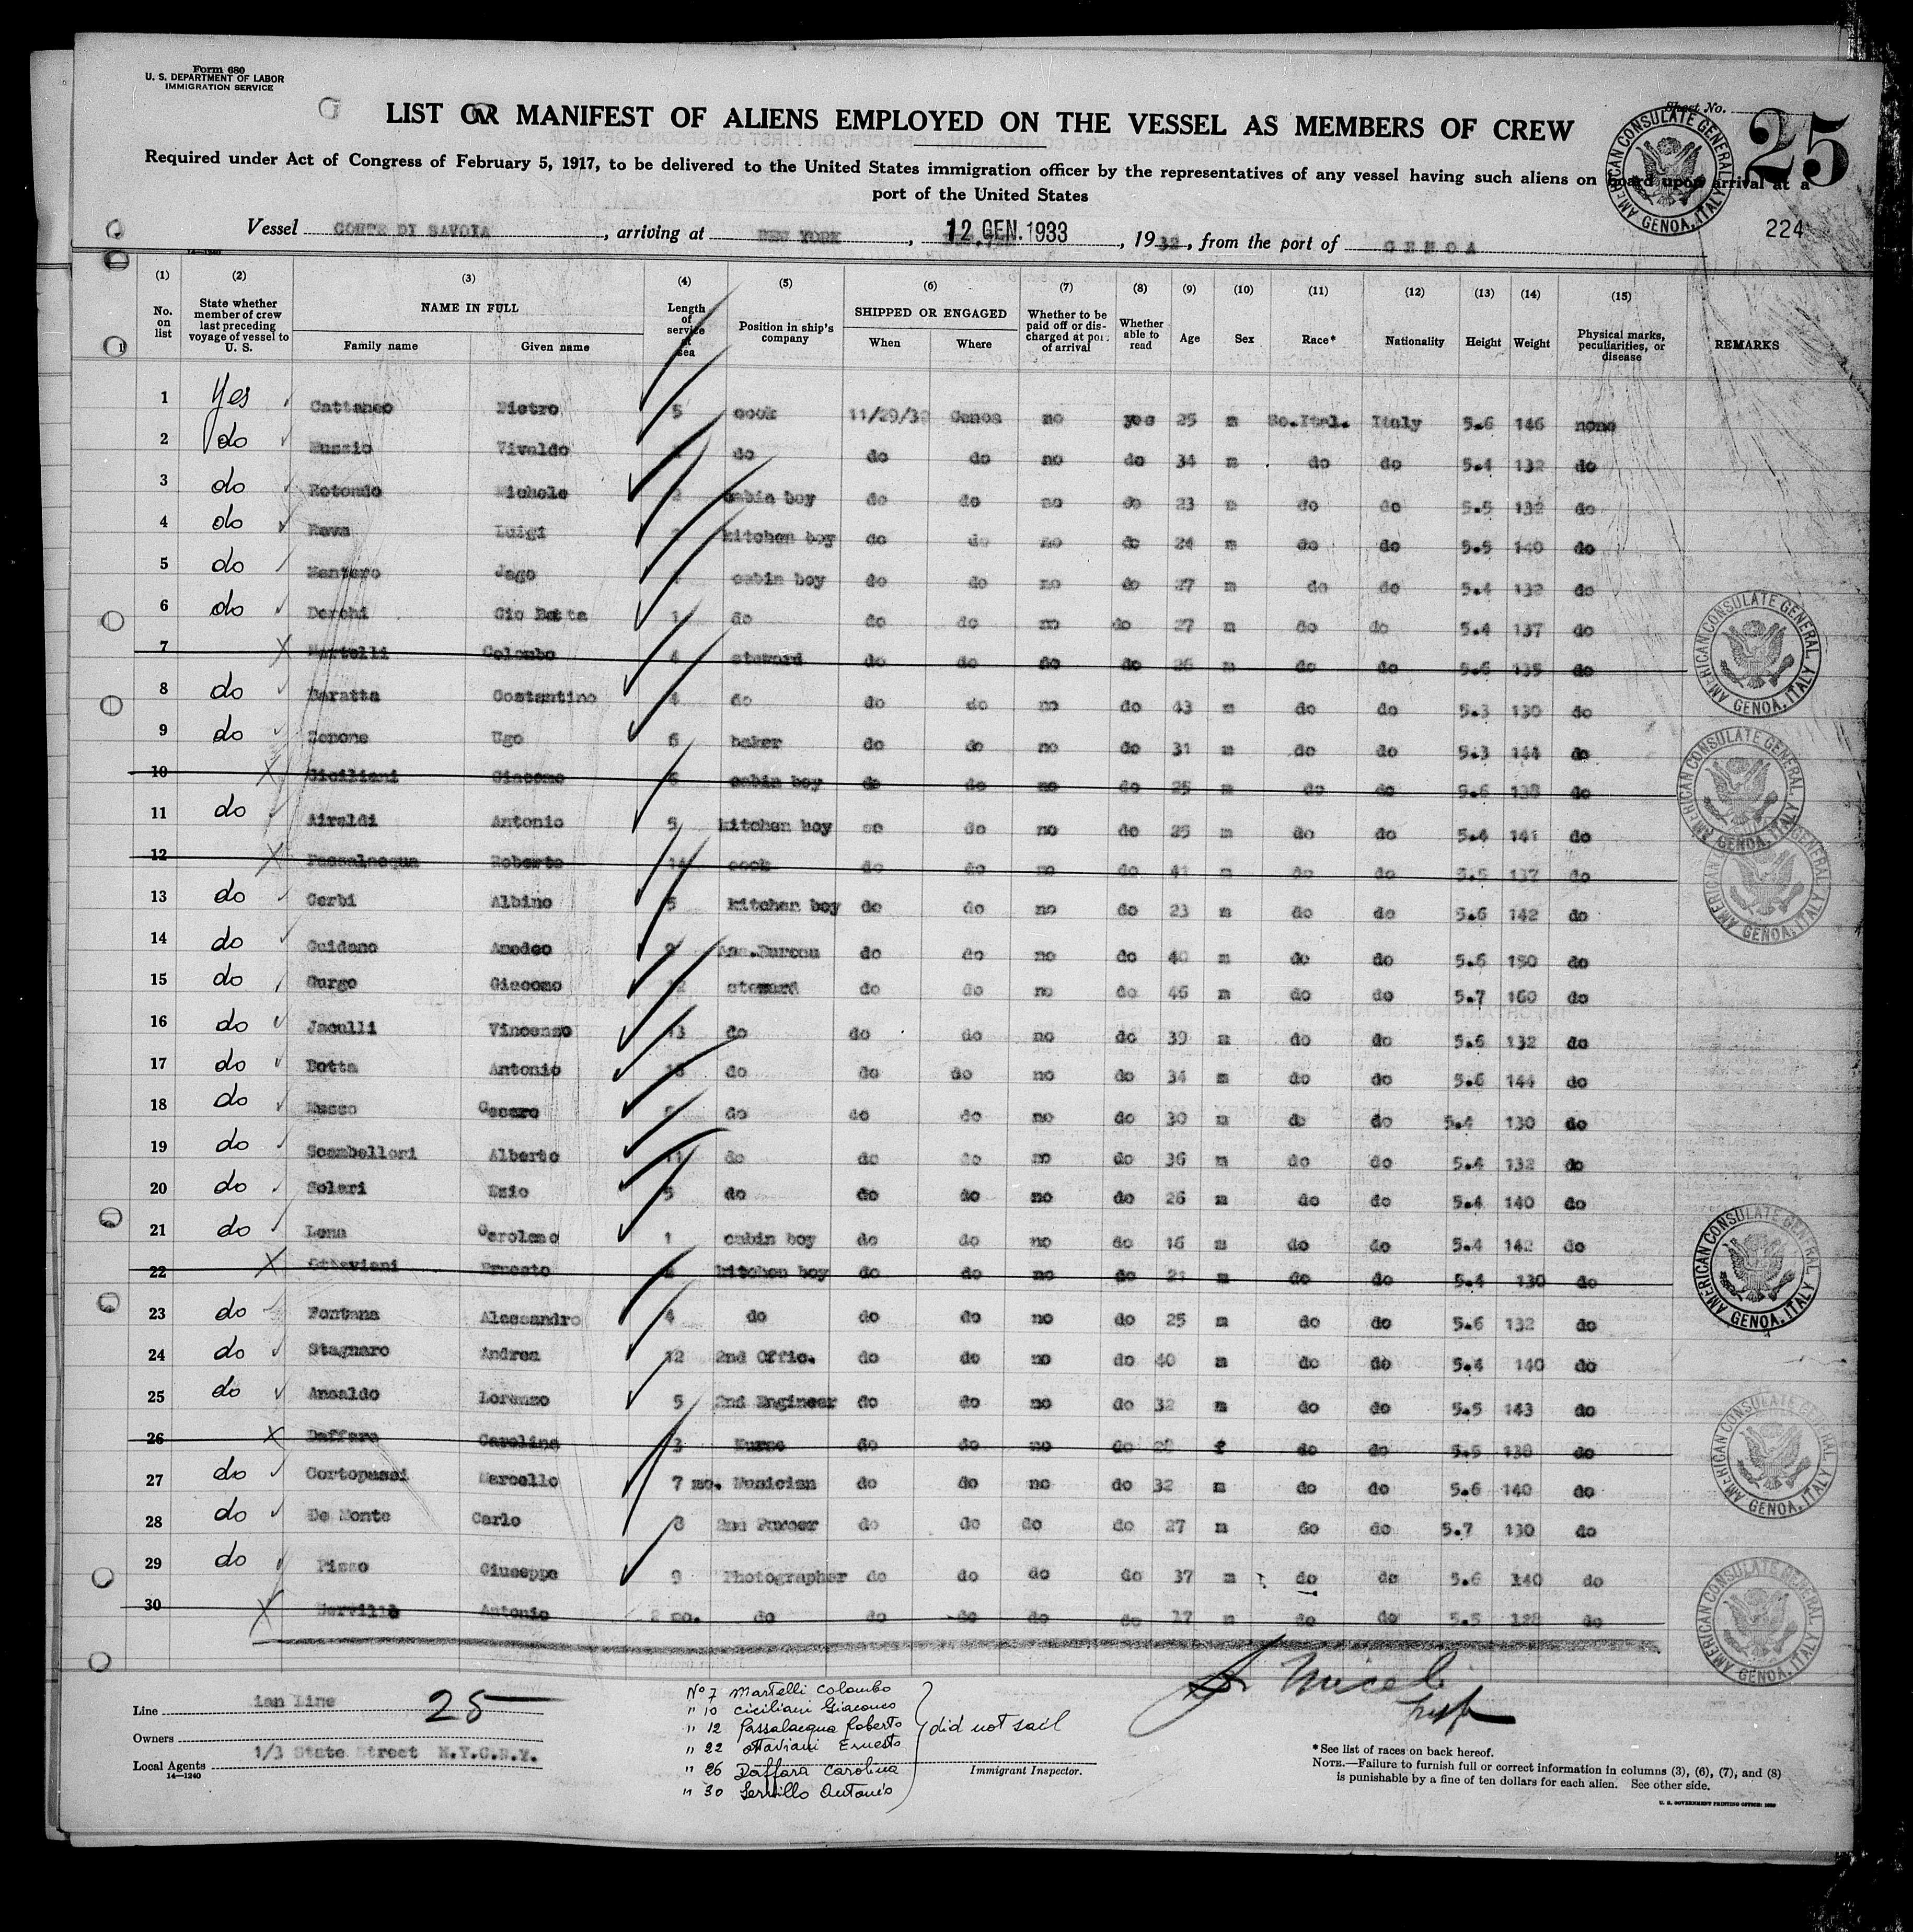 Form 680
U. S. DEPARTMENT OF LABOR
IMMIGRATION SERVICE
Sheet No.
25
LIST OR MANIFEST OF ALIENS EMPLOYED ON THE VESSEL AS MEMBERS OF CREW
Required under Act of Congress of February 5, 1917, to be delivered to the United States immigration officer by the representatives of any vessel having such aliens on board upon arrival at a
port of the United States
AMERICAN CONSULATE GENERAL GENOA, ITALY
224
Vessel CONTE DI SAVOIA, arriving at NEW YORK, 12. GEN. 1933, 1932, from the port of GENOA
14—1240
(1) (2) (3) (4) (5) (6) (7) (8) (9) (10) (11) (12) (13) (14) (15)
No. on list State whether member of crew last preceding voyage of vessel to U. S. NAME IN FULL Family name Given name Length of service at sea Position in ship's company SHIPPED OR ENGAGED When Where Whether to be paid off or discharged at port of arrival Whether able to read Age Sex Race* Nationality Height Weight Physical marks, peculiarities, or disease REMARKS
1 Yes Cattaneo Pietro 5 cook 11/29/32 Genoa no yes 25 m So.Ital. Italy 5.6 146 none
2 do Mussio Vivaldo do do do no do 34 m do do 5.4 132 do
3 do Rotondo Michele 2 cabin boy do do no do 23 m do do 5.5 132 do
4 do Luigi kitchen boy do do no do 24 m do do 5.5 140 do
5 do Mantero Jago cabin boy do do no do 27 m do do 5.4 132 do
6 do Derchi Gio Batta 1 do do do no do 27 m do do 5.4 137 do
7 Martelli Colombo 4 steward do do do do 26 m do do 5.6 135 do
8 do Baratta Costantino 4 do do do no do 43 m do do 5.3 130 do
9 do Zenone Ugo 6 baker do do no do 31 m do do 5.3 144 do
10 Siciliani Giacomo 6 cabin boy do do no do 25 m do do 5.6 138 do
11 do Airaldi Antonio 5 kitchen boy so do no do 25 m do do 5.4 141 do
12 Passalacqua Roberto 14 cook do do no do 41 m do do 5.5 137 do
13 do Gerbi Albino 5 kitchen boy do do no do 23 m do do 5.6 142 do
14 do Guidano Amedeo 9 do do no do 40 m do do 5.6 150 do
15 do Gurgo Giacomo 12 steward do do no do 46 m do do 5.7 160 do
16 do Jaculli Vincenzo 13 do do do no do 39 m do do 5.6 132 do
17 do Botta Antonio do do do no do 34 m do do 5.6 144 do
18 do Musso Cesare do do do no do 30 m do do 5.4 130 do
19 do Scambelluri Alberto 11 do do do no do 36 m do do 5.4 132 do
20 do Solari Ezio 5 do do do no do 26 m do do 5.4 140 do
21 do Lena Gerolamo 1 cabin boy do do no do 16 m do do 5.4 142 do
22 Ottaviani Ernesto kitchen boy do do no do 21 m do do 5.4 130 do
23 do Fontana Alessandro 4 do do do no do 25 m do do 5.6 132 do
24 do Stagnaro Andrea 12 2nd Offic. do do no do 40 m do do 5.4 140 do
25 do Ansaldo Lorenzo 5 2nd Engineer do do no do 32 m do do 5.5 143 do
26 Daffara Carolina 3 Nurse do do no do 28 f do do 5.5 138 do
27 do Cortopassi Marcello 7 mo. Musician do do no do 32 m do do 5.6 140 do
28 do De Monte Carlo 8 2nd Purser do do do do 27 m do do 5.7 130 do
29 do Pizzo Giuseppe 9 Photographer do do do do 37 m do do 5.6 140 do
30 Servillo Antonio 2 mo. do do do do do 17 m do do 5.5 128 do
AMERICAN CONSULATE GENERAL GENOA, ITALY
AMERICAN CONSULATE GENERAL GENOA, ITALY
AMERICAN GENERAL GENOA, ITALY
AMERICAN CONSULATE GENERAL GENOA, ITALY
AMERICAN CONSULATE GENERAL GENOA, ITALY
AMERICAN CONSULATE GENERAL GENOA, ITALY
Line ian Line 25
Owners
Local Agents 1/3 State Street N.Y.C.N.Y.
14—1240
No 7 Martelli Colombo
" 10 Ciciliani Giacomo
" 12 Passalacqua Roberto
" 22 Ottaviani Ernesto
" 26 Daffara Carolina
" 30 Servillo Antonio
did not sail
Immigrant Inspector.
*See list of races on back hereof.
NOTE.—Failure to furnish full or correct information in columns (3), (6), (7), and (8)
is punishable by a fine of ten dollars for each alien. See other side.
U. S. GOVERNMENT PRINTING OFFICE: